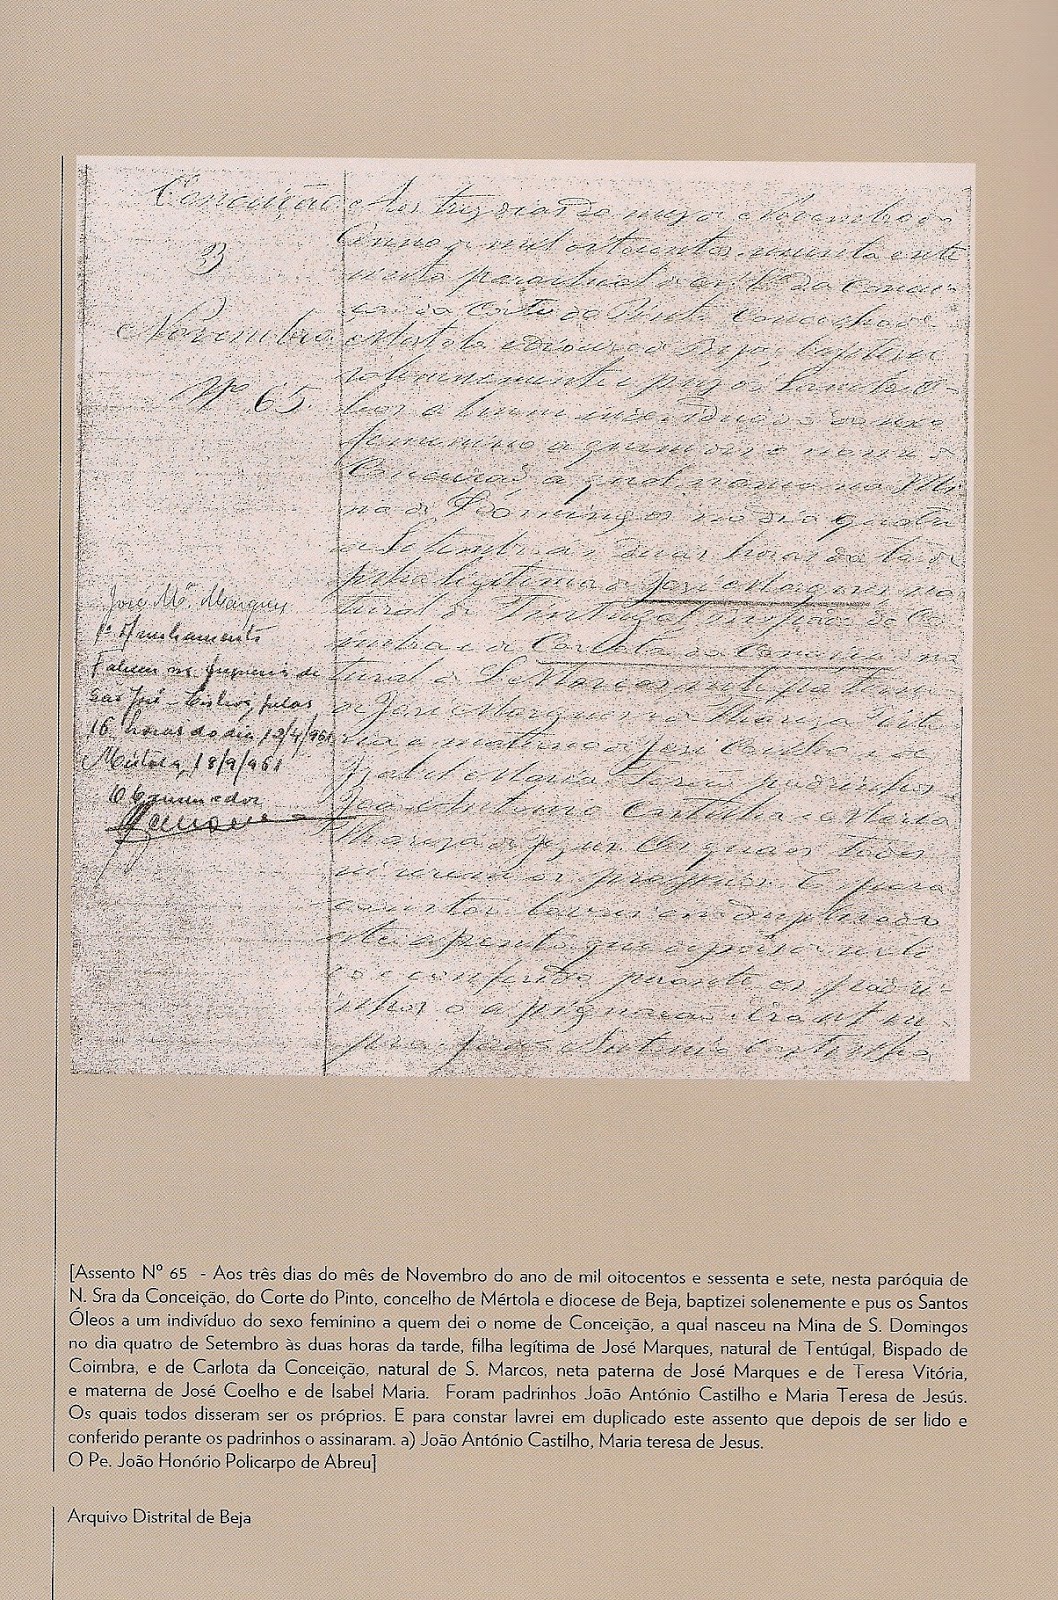 Conceição
3
Novembro
Nº 65.
Aos tres dias do mez de Novembro do
Anno de mil oitocentos e sete
nesta parochial da Concei
Corte do Pinto Concelho de
Mertola e Diocese de Beja, baptizei
solemnemente e puz os Santos O-
leos a hum individuo do sexo
femenino a quem dei o nome de
Conceição a qual nasceo na Mi
na de S. Domingos no dia quatro
de Setembro ás duas horas da tarde
filha legitima de José Marques na
tural de Tentugal Bispado de Co
imbra e de Carlota da Conceição na
tural de S. Marcos neta paterna
de José Marques e de Thareza Vito
ria e materna de José Coelho e de
Izabel Maria. Forão padrinhos
João Antonio Castilho e Maria
Thareza de Jezus. Os quaes todos
os proprios. E para
constar lavrei em duplicado
este assento que depois de ser li
do e conferido perante os padri-
nhos o assignarão. Era ut su
pra. João Antonio Castilho
José Mª Marques
Faleceu na freguesia de
São José - Lisboa, pelas
16 horas do dia 12/4/961
Mértola, 18/9/961
O Conservador
[Assento Nº 65 - Aos três dias do mês de Novembro do ano de mil oitocentos e sessenta e sete, nesta paróquia de
N. Sra da Conceição, do Corte do Pinto, concelho de Mértola e diocese de Beja, baptizei solenemente e pus os Santos
Óleos a um indivíduo do sexo feminino a quem dei o nome de Conceição, a qual nasceu na Mina de S. Domingos
no dia quatro de Setembro às duas horas da tarde, filha legítima de José Marques, natural de Tentúgal, Bispado de
Coimbra, e de Carlota da Conceição, natural de S. Marcos, neta paterna de José Marques e de Teresa Vitória,
e materna de José Coelho e de Isabel Maria. Foram padrinhos João António Castilho e Maria Teresa de Jesús.
Os quais todos disseram ser os próprios. E para constar lavrei em duplicado este assento que depois de ser lido e
conferido perante os padrinhos o assinaram. a) João António Castilho, Maria teresa de Jesus.
O Pe. João Honório Policarpo de Abreu]
Arquivo Distrital de Beja